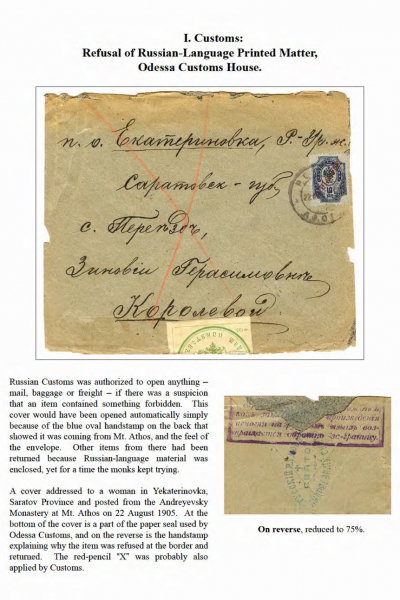 I. Customs:
Refusal of Russian-Language Printed Matter,
Odessa Customs House.
п. о. Екатериновка, Р.-Ур. ж.
Саратовск - губ
с. Переѣздъ,
Зиновіи Герасимовнѣ
Королевой.
Russian Customs was authorized to open anything –
mail, baggage or freight – if there was a suspicion
that an item contained something forbidden. This
cover would have been opened automatically simply
because of the blue oval handstamp on the back that
showed it was coming from Mt. Athos, and the feel of
the envelope. Other items from there had been
returned because Russian-language material was
enclosed, yet for a time the monks kept trying.
A cover addressed to a woman in Yekaterinovka,
Saratov Province and posted from the Andreyevsky
Monastery at Mt. Athos on 22 August 1905. At the
bottom of the cover is a part of the paper seal used by
Odessa Customs, and on the reverse is the handstamp
explaining why the item was refused at the border and
returned. The red-pencil "X" was probably also
applied by Customs.
On reverse, reduced to 75%.